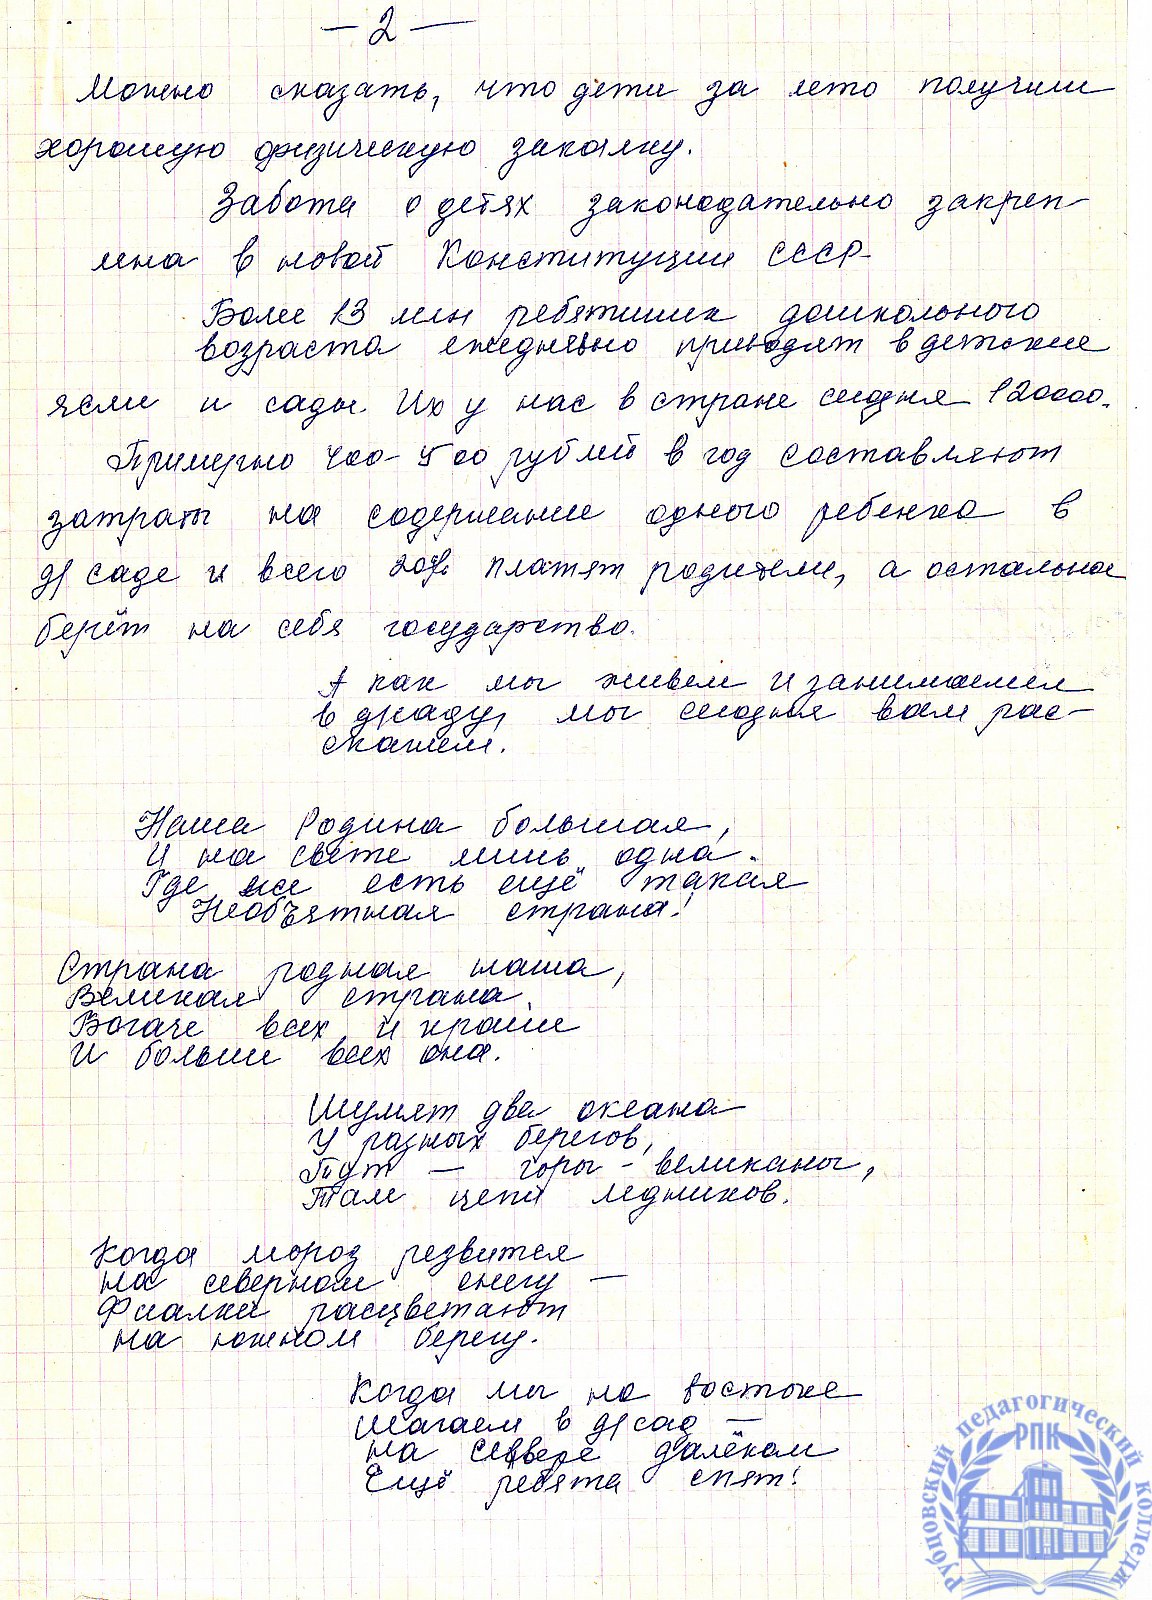 — 2 —
Можно сказать, что дети за лето получили
хорошую физическую закалку.
Забота о детях законодательно закреп-
лена в новой Конституции СССР
Более 13 млн ребятишек дошкольного
возраста ежедневно приводят в детские
ясли и сады. Их у нас в стране сегодня 120000.
Примерно 400-500 рублей в год составляют
затраты на содержание одного ребенка в
д/саде и всего 20% платят родители, а остальное
берёт на себя государство.
А как мы живем и занимаемся
в д/саду, мы сегодня вам рас-
скажем.
Наша Родина большая,
И на свете лишь одна.
Где же есть ещё такая
Необъятная страна!
Страна родная наша,
Великая страна.
Богаче всех и краше
И больше всех она.
Шумят два океана
У разных берегов,
Тут — горы - великаны,
Там цепи ледников.
Когда мороз резвится
на северном снегу —
Фиалки расцветают
на южном берегу.
Когда мы на востоке
Шагаем в д/сад —
на севере далёком
Ещё ребята спят!
Рубцовский педагогический колледж
РПК